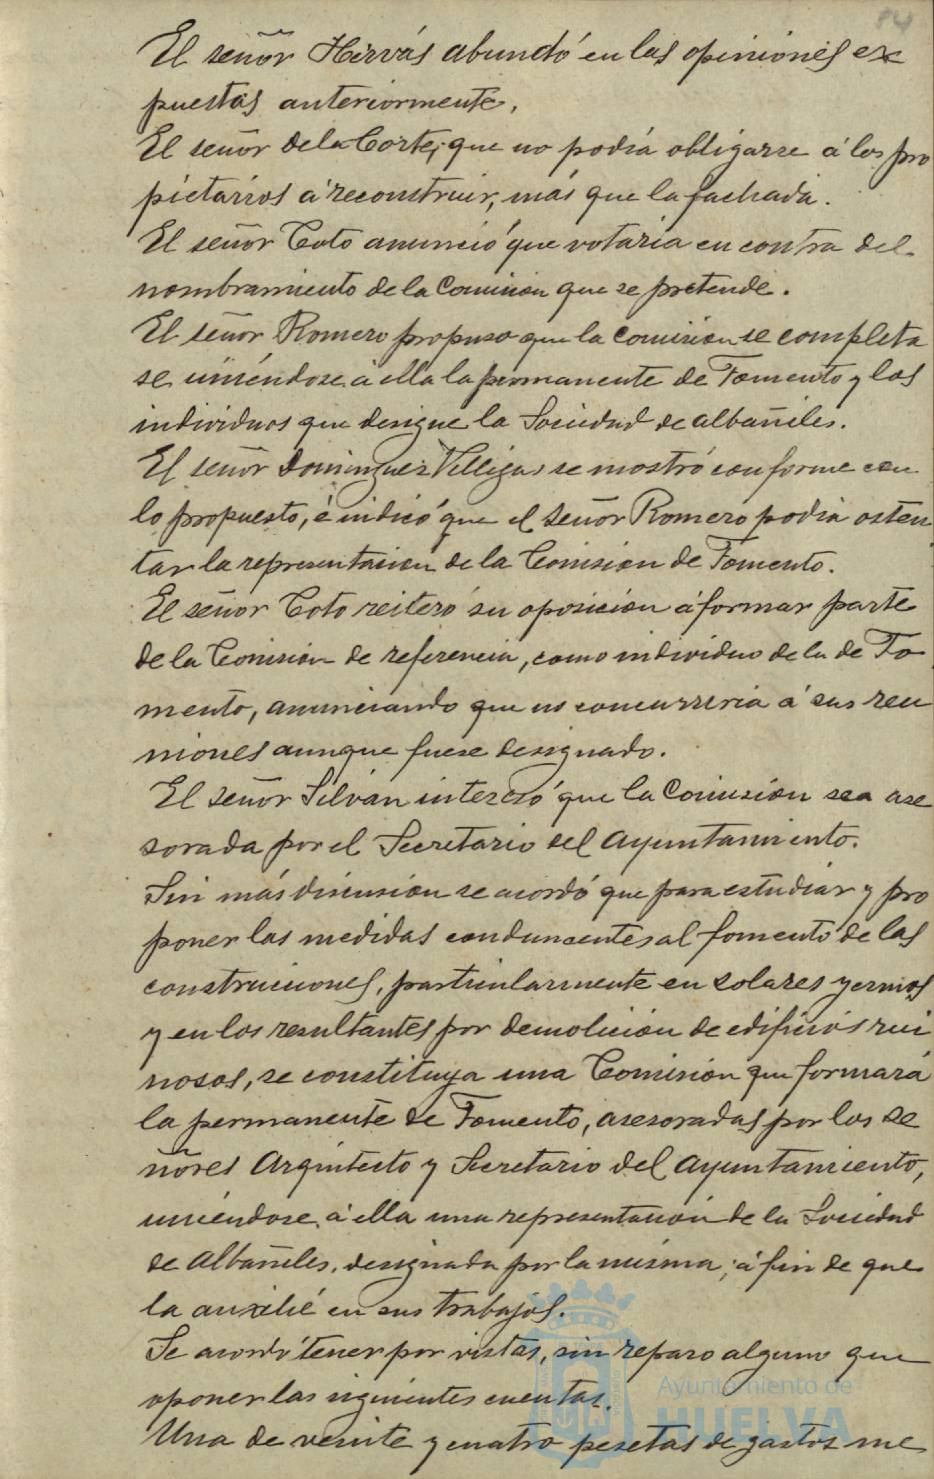 84
El señor Hervás abundó en las opiniones ex
puestas anteriormente.
El señor de la Corte, que no podía obligarse á los pro
pietarios á reconstruir, más que la fachada.
El señor Coto anunció que votaria en contra del
nombramiento de la Comision que se pretende.
El señor Romero propuso que la Comision se completa
se uniéndose á ella la permanente de Fomento y los
individuos que designe la Sociedad de albañiles.
El señor Dominguez Villegas se mostró conforme con
lo propuesto, é indicó que el señor Romero podia osten
tar la representacion de la Comision de Fomento.
El señor Coto reiteró su oposicion á formar parte
de la Comision de referencia, como individuo de la de Fo
mento, anunciando que no concurriria á sus reu
niones aunque fuese designado.
El señor Silván interesó que la Comision sea ase
sorada por el Secretario del Ayuntamiento.
Sin más discusion se acordó que para estudiar y pro
poner las medidas conducentes al fomento de las
construcciones, particularmente en solares yermos
y en los resultantes por demolicion de edificios rui
nosos, se constituya una Comision que formará
la permanente de Fomento, asesoradas por los se
ñores Arquitecto y Secretario del Ayuntamiento,
uniéndose á ella una representacion de la Sociedad
de Albañiles, designada por la misma, á fin de que
la auxilie en sus trabajos.
Se acordó tener por vistas, sin reparo alguno que
oponer las siguientes cuentas.
Una de veinte y cuatro pesetas de gastos me
Ayuntamiento de
HUELVA